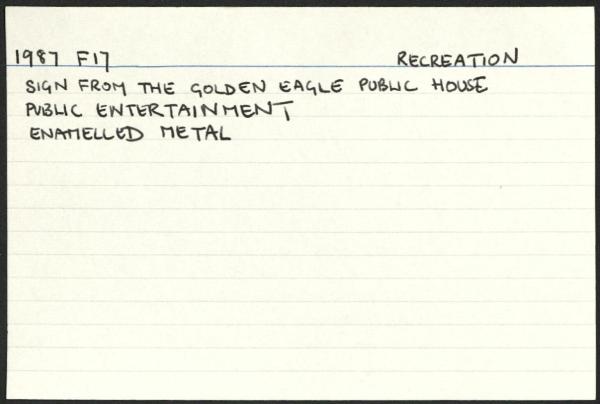 1987 F17 RECREATION
SIGN FROM THE GOLDEN EAGLE PUBLIC HOUSE
PUBLIC ENTERTAINMENT
ENAMELLED METAL